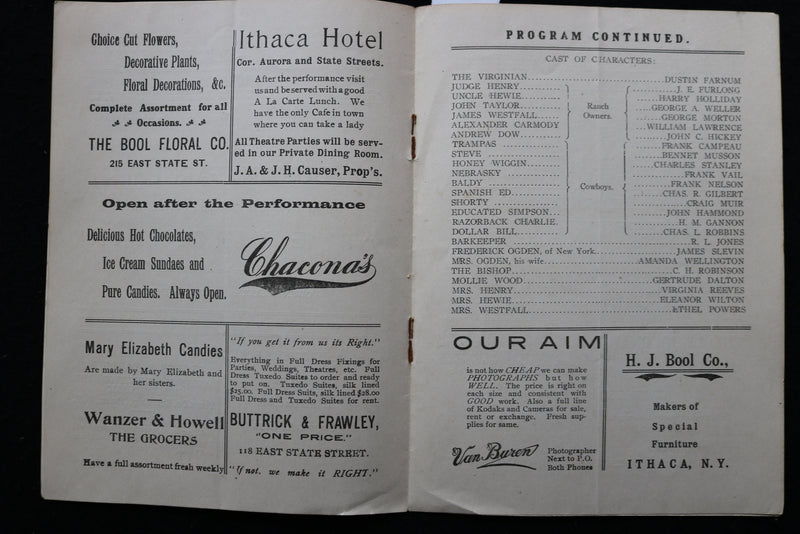 Choice Cut Flowers,
Decorative Plants,
Floral Decorations, &c.
Complete Assortment for all
Occasions.
THE BOOL FLORAL CO.
215 EAST STATE ST.
Ithaca Hotel
Cor. Aurora and State Streets.
After the performance visit
us and be served with a good
A La Carte Lunch. We
have the only Cafe in town
where you can take a lady
All Theatre Parties will be serv-
ed in our Private Dining Room.
J. A. & J. H. Causer, Prop's.
Open after the Performance
Delicious Hot Chocolates,
Ice Cream Sundaes and
Pure Candies. Always Open.
Chacona's
Mary Elizabeth Candies
Are made by Mary Elizabeth and
her sisters.
Wanzer & Howell
THE GROCERS
Have a full assortment fresh weekly
"If you get it from us its Right."
Everything in Full Dress Fixings for
Parties, Weddings, Theatres, etc. Full
Dress Tuxedo Suites to order and ready
to put on. Tuxedo Suites, silk lined
$25.00. Full Dress Suits, silk lined $28.00
Full Dress and Tuxedo Suites for rent.
BUTTRICK & FRAWLEY,
"ONE PRICE."
118 EAST STATE STREET.
"If not, we make it RIGHT."
PROGRAM CONTINUED.
CAST OF CHARACTERS:
THE VIRGINIAN DUSTIN FARNUM
JUDGE HENRY J. E. FURLONG
UNCLE HEWIE HARRY HOLLIDAY
JOHN TAYLOR GEORGE A. WELLER
JAMES WESTFALL GEORGE MORTON
ALEXANDER CARMODY WILLIAM LAWRENCE
ANDREW DOW JOHN C. HICKEY
Ranch
Owners.
TRAMPAS FRANK CAMPEAU
STEVE BENNET MUSSON
HONEY WIGGIN CHARLES STANLEY
NEBRASKY FRANK VAIL
BALDY FRANK NELSON
SPANISH ED CHAS. R. GILBERT
SHORTY CRAIG MUIR
EDUCATED SIMPSON JOHN HAMMOND
RAZORBACK CHARLIE H. M. GANNON
DOLLAR BILL CHAS. L. ROBBINS
Cowboys.
BARKEEPER R. L. JONES
FREDERICK OGDEN, of New York JAMES SLEVIN
MRS. OGDEN, his wife AMANDA WELLINGTON
THE BISHOP C. H. ROBINSON
MOLLIE WOOD GERTRUDE DALTON
MRS. HENRY VIRGINIA REEVES
MRS. HEWIE ELEANOR WILTON
MRS. WESTFALL ETHEL POWERS
OUR AIM
is not how CHEAP we can make
PHOTOGRAPHS but how
WELL. The price is right on
each size and consistent with
GOOD work. Also a full line
of Kodaks and Cameras for sale,
rent or exchange. Fresh sup-
plies for same.
Van Buren
Photographer
Next to P.O.
Both Phones
H. J. Bool Co.,
Makers of
Special
Furniture
ITHACA, N.Y.